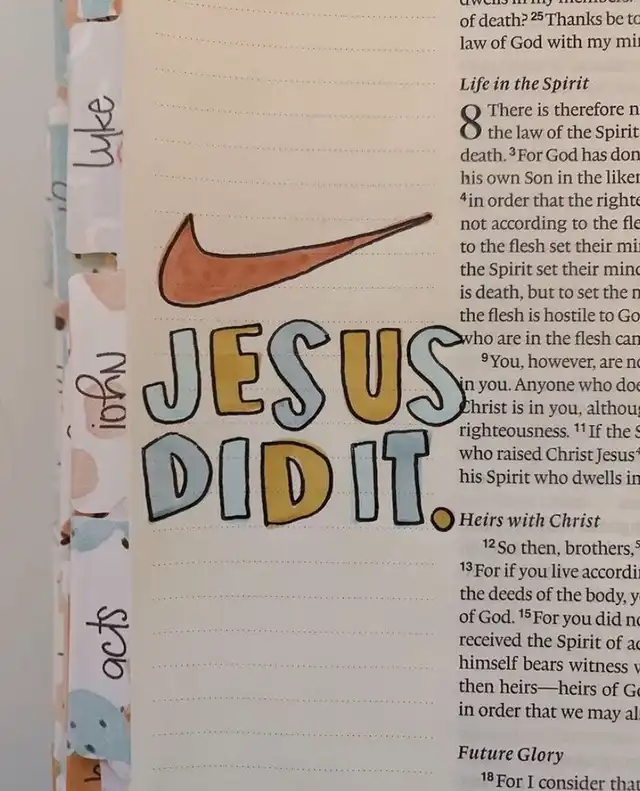 luke
john
acts
JESUS
DID IT.
of death? 25 Thanks be to
law of God with my
Life in the Spirit
8 There is therefore
the law of the Spirit
death. 3 For God has
his own Son in the
4 in order that the
not according to the
to the flesh set their
the Spirit set their
is death, but to set the
the flesh is hostile to
who are in the flesh
9 You, however, are
in you. Anyone who
Christ is in you,
righteousness. 11 If the
who raised Christ Jesus
his Spirit who dwells in
Heirs with Christ
12 So then, brothers,
13 For if you live
the deeds of the body,
of God. 15 For you did
received the Spirit of
himself bears witness
then heirs—heirs of
in order that we may
Future Glory
18 For I consider